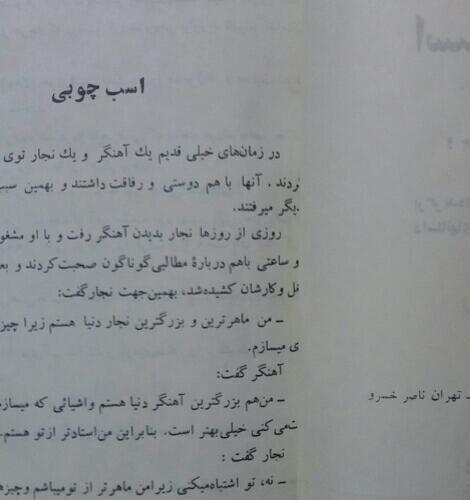 اسب چوبی
در زمان‌های خیلی قدیم یك آهنگر و یك نجار توی
کردند . آنها با هم دوستی و رفاقت داشتند و بهمین سبب
دیگر میرفتند.
روزی از روزها نجار بدیدن آهنگر رفت و با او مشغو
و ساعتی باهم دربارهٔ مطالبی گوناگون صحبت کردند و بعد
وکارشان کشیده شد، بهمین جهت نجار گفت:
ـ من ماهرترین و بزرگترین نجار دنیا هستم زیرا چیز
ی میسازم.
آهنگر گفت:
ـ من هم بزرگترین آهنگر دنیا هستم واشیائی که میسازم
می کنی خیلی بهتر است. بنابراین من استادتر از تو هستم.
نجار گفت :
ـ نه، تو اشتباه میکنی زیرا من ماهر تر از تو میباشم وچیزها
ـ تهران ناصر خسرو